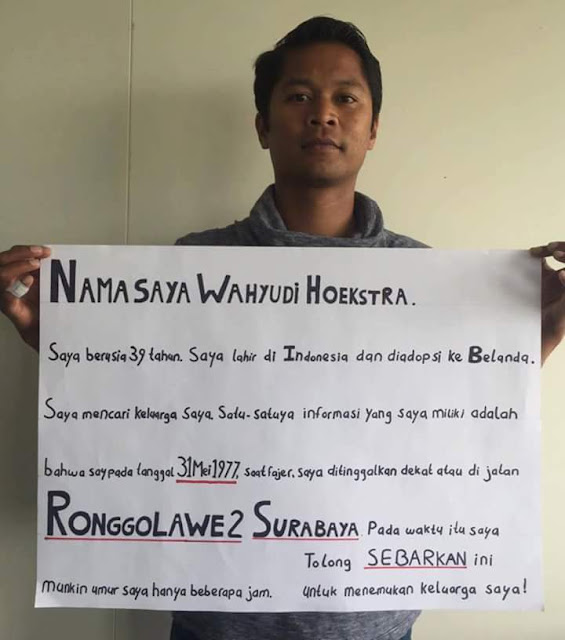 NAMA SAYA WAHYUDI HOEKSTRA.
Saya berusia 39 tahun. Saya lahir di Indonesia dan diadopsi ke Belanda.
Saya mencari keluarga saya. Satu-satuya informasi yang saya miliki adalah
bahwa saypada tanggal 31 Mei 1977, saat fajer, saya ditinggalkan dekat atau di jalan
RONGGOLAWE 2 SURABAYA. Pada waktu itu saya
Tolong SEBARKAN ini
munkin umur saya hanya beberapa jam. untuk menemukan keluarga saya!